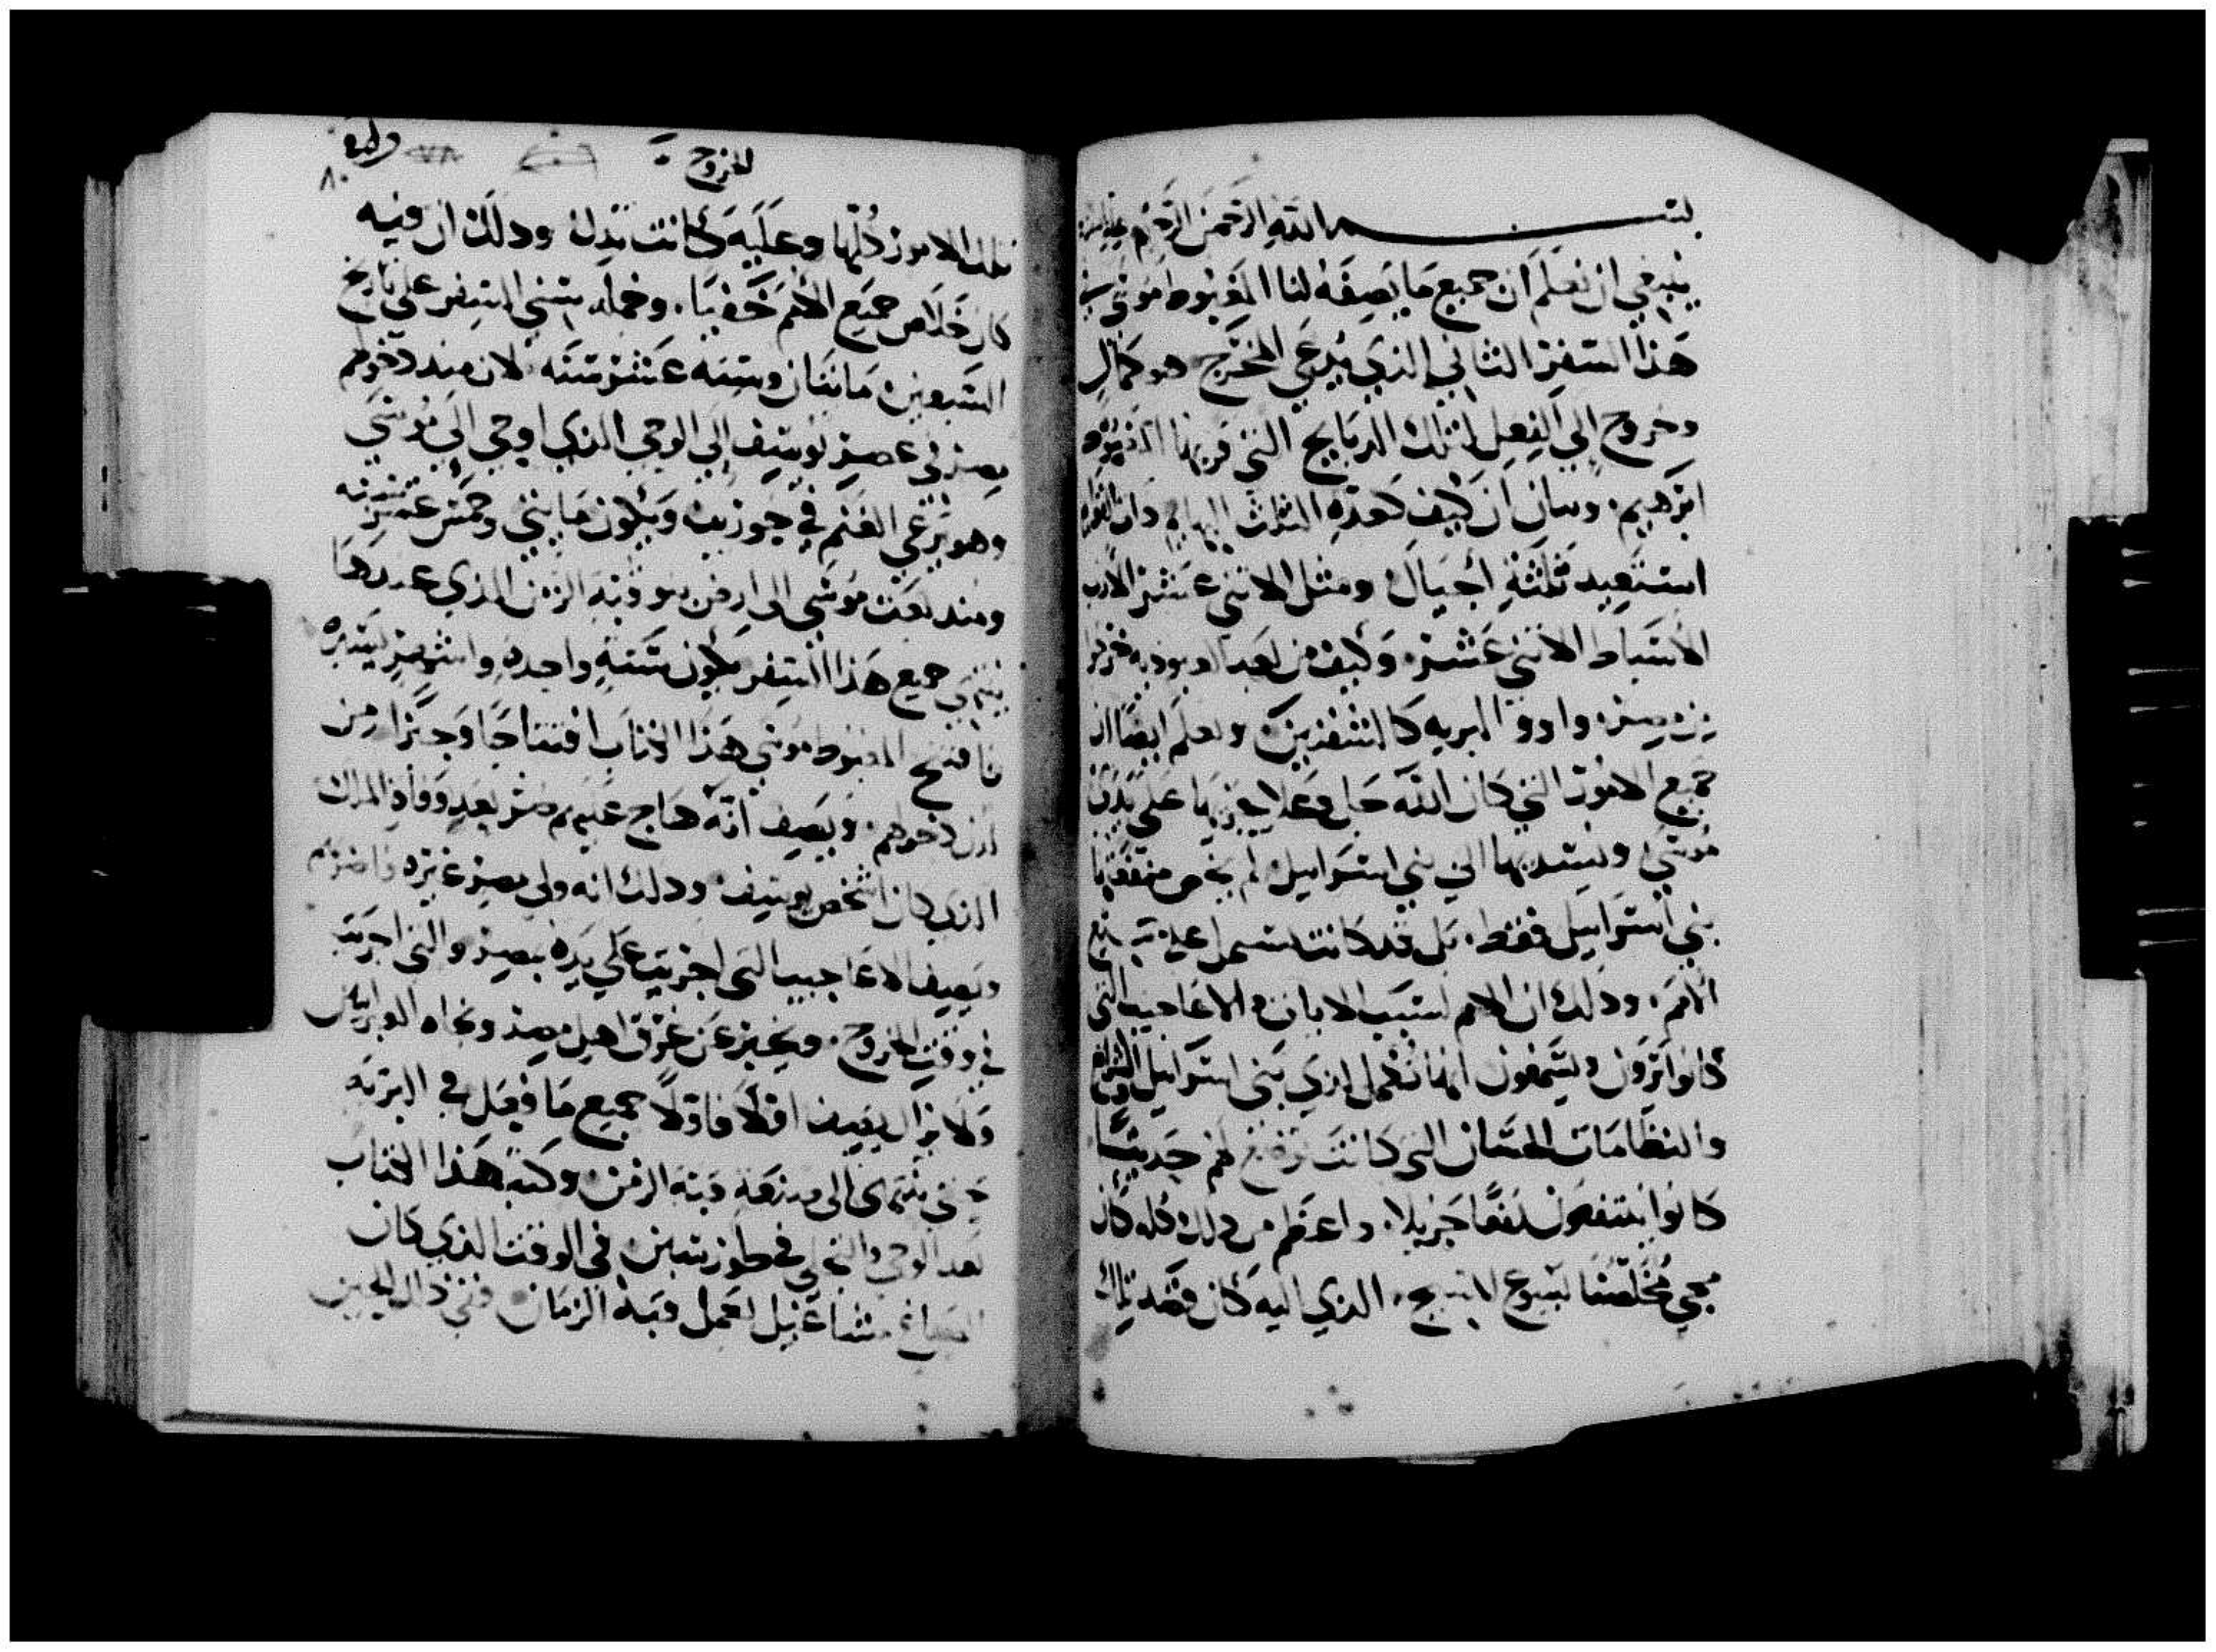 بسم الله الرحمن الرحيم
ينبغي ان نعلم ان جميع ما يصفه لنا المغبوط موسي في
هذا السفر الثاني الذي يدعي المخرج هو كمال
وخروج الي الفعل لتلك الدبايح التي قربها
ابرهيم. وبيان ان كيف هذه الثلث
استعبد ثلثة أجيال ومثل الاثني عشر
الأسباط الاثني عشر. وكيف من بعد العبوديه خرجوا
من مصر. واووا البريه كالمتغربين ونعلم ايضا ان
جميع الامور التي كان الله جل وعلا يجزيها علي يدي
موسي ويسديها الي بني اسراييل لم يخص منفعتها
بني اسراييل فقط. بل قد كانت تشمل علي جميع
الامم. ودلك ان الامم بسبب الايات والاعاجيب التي
كانوا يرون ويسمعون انها تعمل لدي بني اسراييل والشرايع
والنظامات الحسان التي كانت توضع لهم حديثًا
كانوا ينتفعون نفعًا جزيلا. واعظم من دلك كله كان
مجي مخلصنا يسوع المسيح. الذي اليه كان قصد تلك
الخروج
٨٠
تلك الامور كلها وعليه كانت تدل ودلك ان فيه
كان خلاص جميع الامم خفيا. وجمله سني السفر علي تاريخ
السبعين مايتان وسته عشر سنه لان منذ دخولهم
مصر في عصر يوسف الي الوحي الذي اوحي الي موسي
وهو يرعي الغنم في حوريب ويكون مايتي وخمس عشر سنه
ومنذ بعث موسي الي ارض مصر وقبة الزمن الذي عندها
ينتهي جميع هذا السفر يكون سنة واحده واشهر يسيره
فافتتح المغبوط موسي هذا الكتاب افتتاحا وجيزا من
لدن دخولهم. ويصف انه هاج عليهم مصر بعد وفاة الملك
الذي كان اشخص يوسف ودلك انه ولي مصر غيره فاضرهم
ويصف الاعاجيب التي اجريت علي يده بمصر والتي اجريت
في وقت الخروج. ويخبر عن غرق اهل مصر ونجاه العبرانيين
ولا يزال يصف اولا فاولا جميع ما فعل في البريه
حتي ينتهي الي صنعة قبة الزمن وكتب هذا الكتاب
بعد الوحي والتجلي في طور سينين في الوقت الذي كان
الصياغ متشاغيل لعمل قبة الزمان